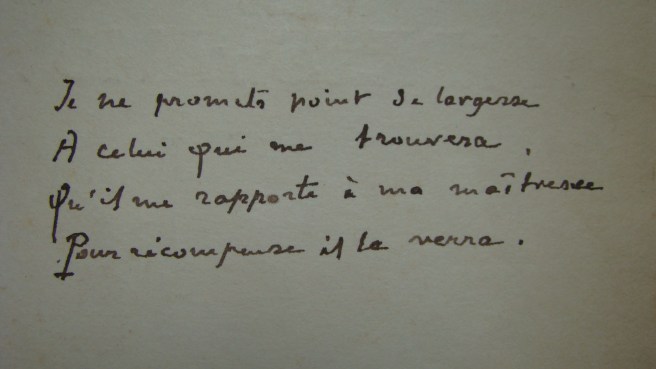 Je ne promets point de largesse
A celui qui me trouvera,
Qu'il me rapporte à ma maîtresse
Pour récompense il la verra.